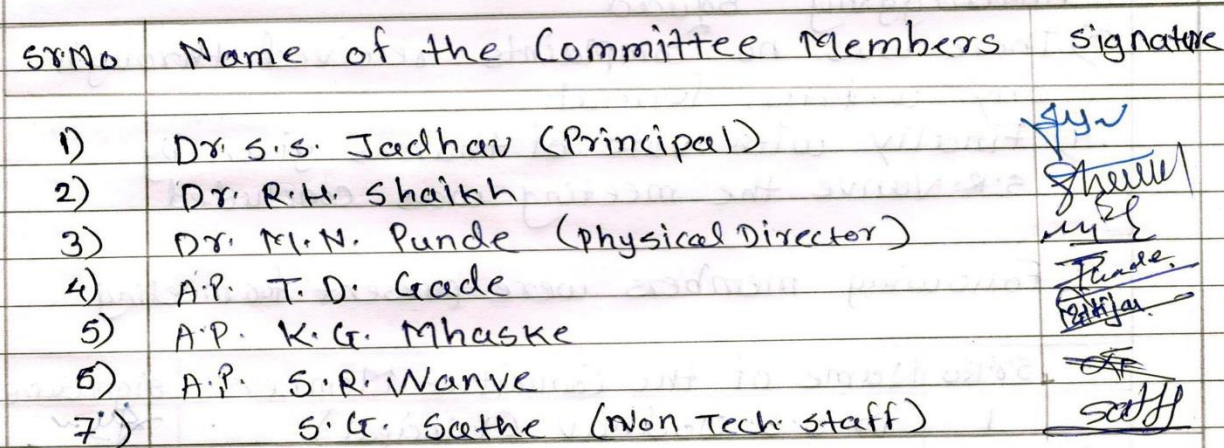 Sr.No Name of the Committee Members Signature
1) Dr. S.S. Jadhav (Principal)
2) Dr. R.H. Shaikh
3) Dr. M.N. Punde (Physical Director)
4) A.P. T.D. Gade
5) A.P. K.G. Mhaske
6) A.P. S.R. Wanve
7) S.G. Sathe (Non Tech. staff)